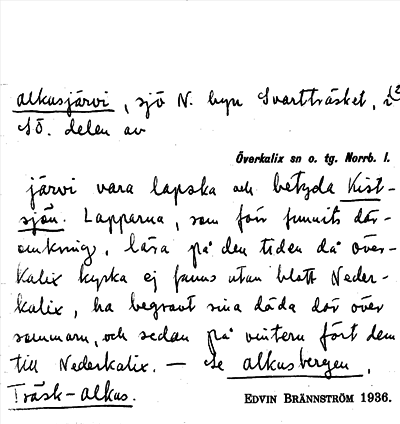 alkusjärvi, sjö N. byn Svartträsket, i
SÖ. delen av
Överkalix sn o. tg. Norrb. l.
järvi vara lapska och betyda Kist-
sjön. Lapparna, som förr funnits där-
omkring, lära på den tiden då Över-
kalix kyrka ej fanns utan blott Neder-
kalix, ha begravt sina döda där över
sommarn, och sedan på vintern fört dem
till Nederkalix. — Se alkusbergen,
Träsk-alkus.
EDVIN BRÄNNSTRÖM 1936.